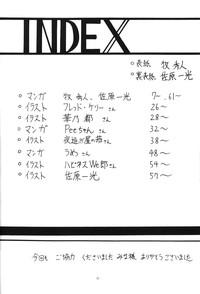 INDEX
○表紙 牧 秀人
○裏表紙 佐原一光
○ マンガ 牧 秀人、佐原一光 7~、61~
○ イラスト フレッド・ケリーさん 26~
○ イラスト 華乃 都 さん 28~
○ マンガ Peeちゃん さん 32~
○ イラスト 38~
○ マンガ うめ さん 48~
○ イラスト ハピネスWE郎さん 54~
○ イラスト 佐原一光 57~
今回も ご協力 くださいました みな様 ありがとうございました